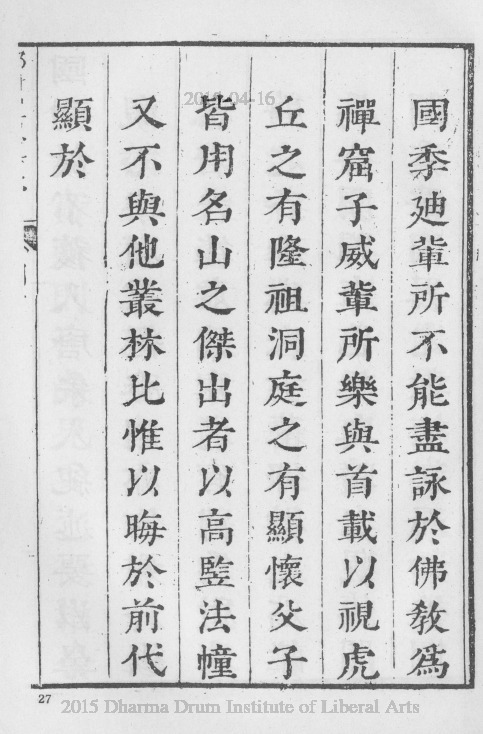 國季廸輩所不能盡詠於佛教爲
禪窟子威輩所樂與首載以視虎
丘之有隆祖洞庭之有顯懷父子
皆用名山之傑出者以高豎法幢
又不與他叢林比惟以晦於前代
顯於
2015-04-16
27
2015 Dharma Drum Institute of Liberal Arts